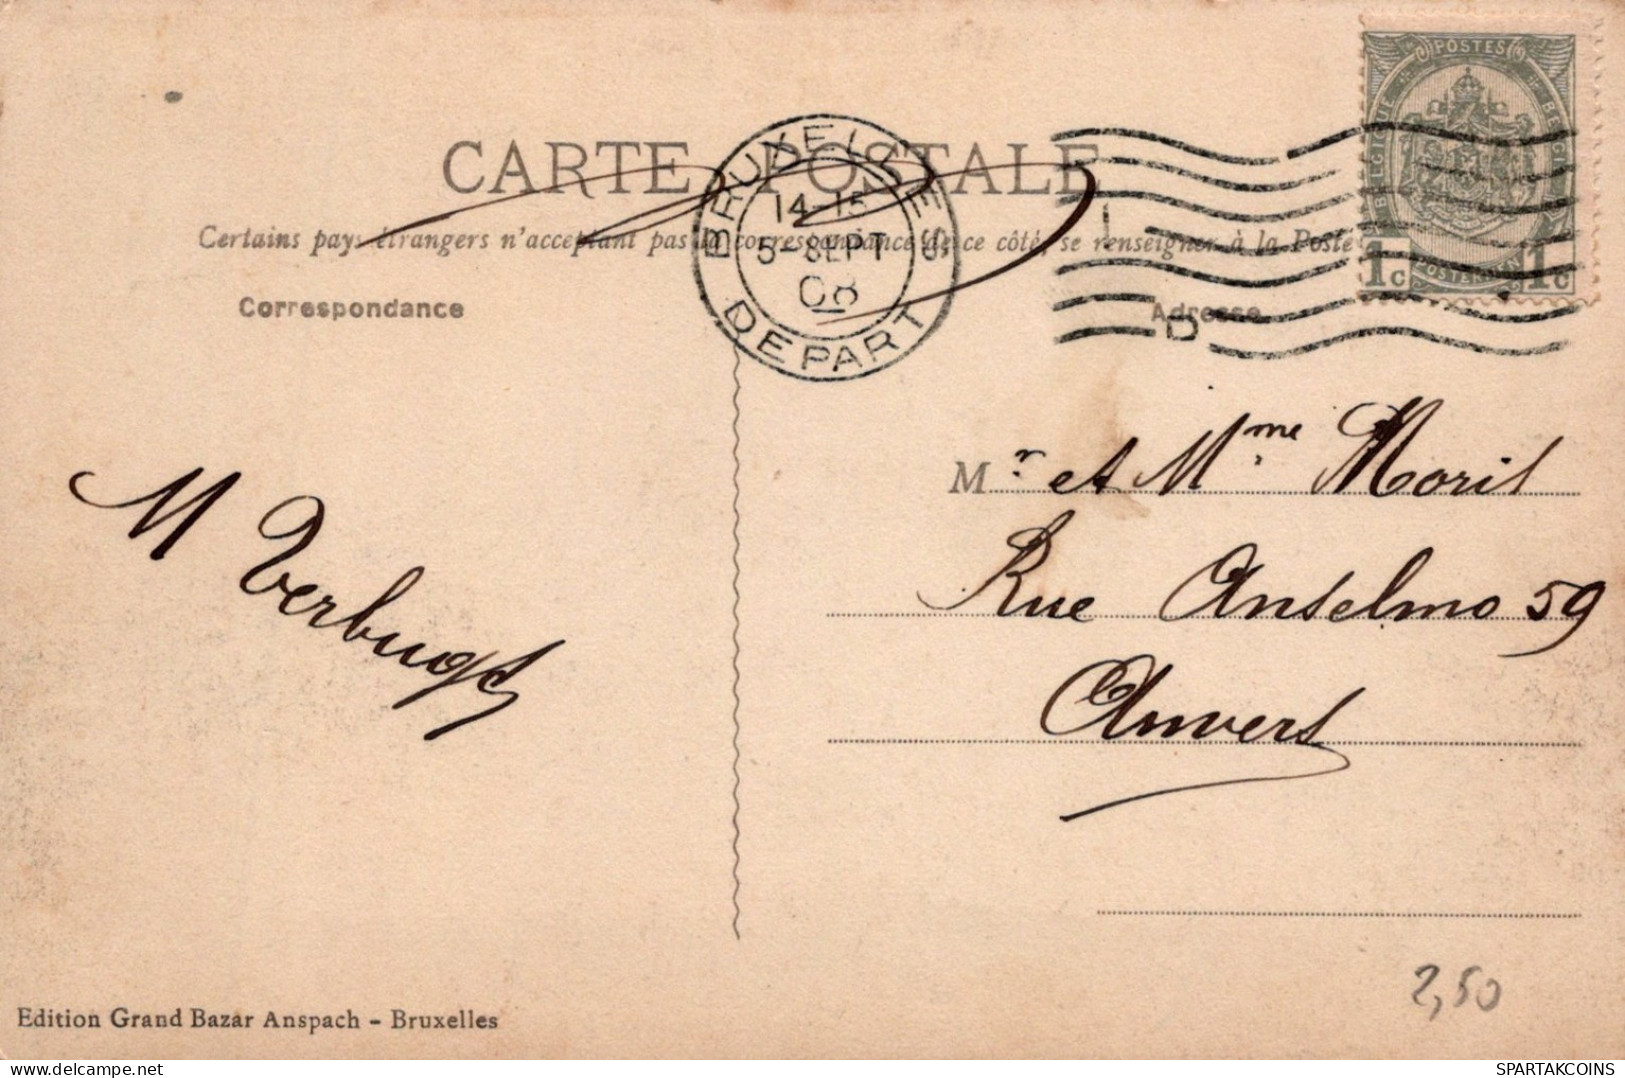 CARTE POSTALE
Certains pays étrangers n'acceptant pas la correspondance de ce côté, se renseigner à la Poste
Correspondance
Adresse
BRUXELLES
14-15
5-SEPT
08
DEPART
POSTES
BELGIQUE
POSTERIJEN
1c 1c
Mr et Mme Moril
Rue Anselmo 59
Anvers
M Verbugt
Edition Grand Bazar Anspach - Bruxelles
2,50
filler.livemaster.com